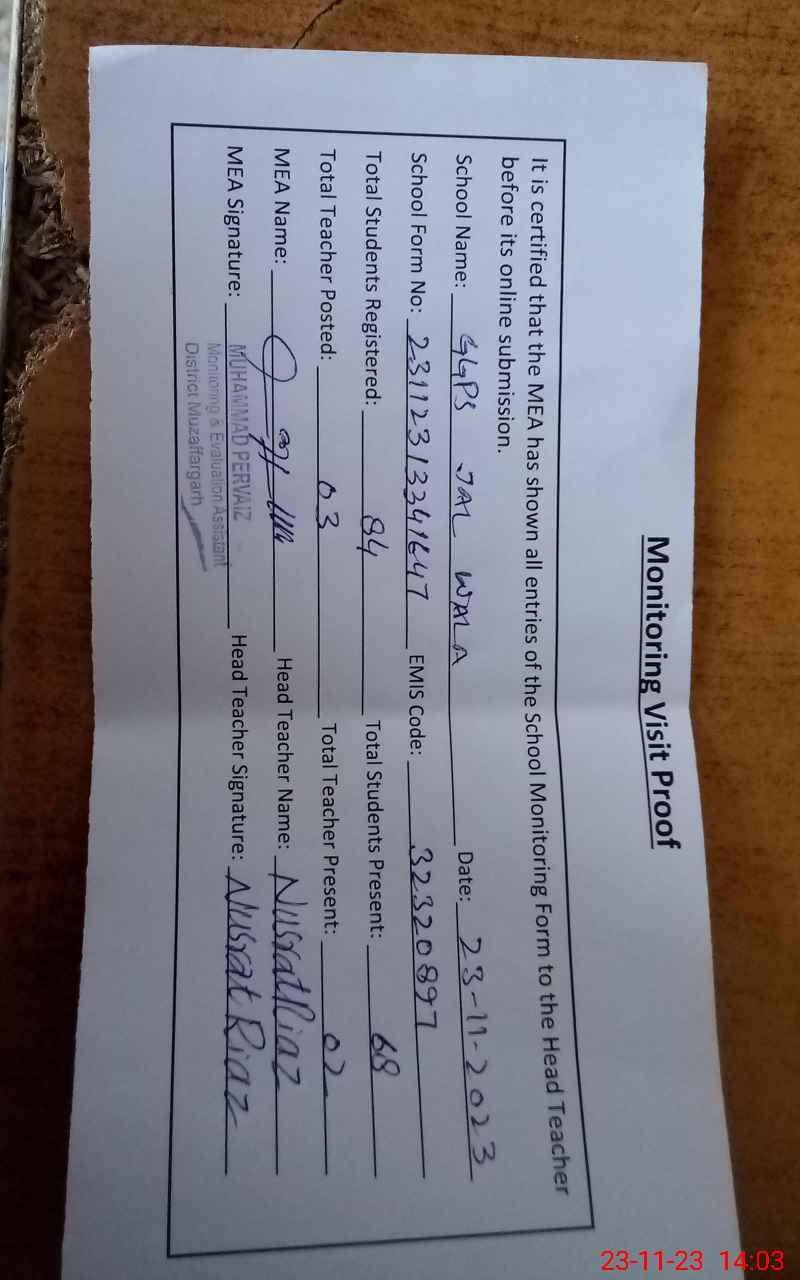 Monitoring Visit Proof
It is certified that the MEA has shown all entries of the School Monitoring Form to the Head Teacher
before its online submission.
School Name: GGPS JAL WALA Date: 23-11-2023
School Form No: 23112313341647 EMIS Code: 32320897
Total Students Registered: 84 Total Students Present: 68
Total Teacher Posted: 03 Total Teacher Present: 02
MEA Name: Head Teacher Name: Nusrat Riaz
MEA Signature: Head Teacher Signature: Nusrat Riaz
MUHAMMAD PERVAIZ
Monitoring & Evaluation Assistant
District Muzaffargarh
23-11-23 14:03